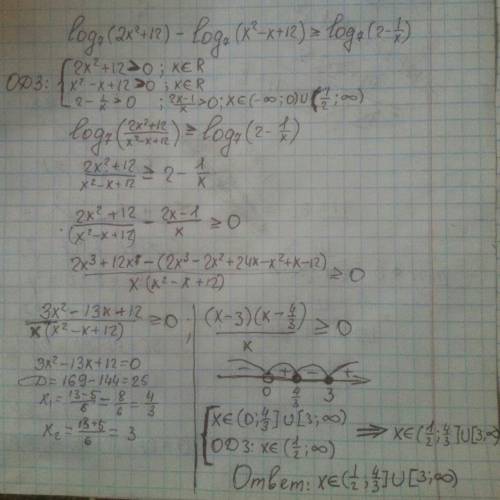 log₇(2x²+12) - log₇(x²-x+12) ≥ log₇(2-1/x)
ОДЗ: { 2x²+12>0 ; x∈R
x²-x+12>0 ; x∈R
2-1/x>0 ; (2x-1)/x>0; x∈(-∞;0)∪(1/2;∞)
log₇((2x²+12)/(x²-x+12)) ≥ log₇(2-1/x)
(2x²+12)/(x²-x+12) ≥ 2-1/x
(2x²+12)/(x²-x+12) - (2x-1)/x ≥ 0
(2x³+12x-(2x³-2x²+24x-x²+x-12))/(x(x²-x+12)) ≥ 0
(3x²-13x+12)/(x(x²-x+12)) ≥ 0 ;
3x²-13x+12=0
D=169-144=25
x₁=(13-5)/6=8/6=4/3
x₂=(13+5)/6=3
((x-3)(x-4/3))/x ≥ 0
- + - +
0 4/3 3
{ x∈(0;4/3]∪[3;∞)
ОДЗ: x∈(1/2;∞) ⇒ x∈(1/2;4/3]∪[3;∞)
Ответ: x∈(1/2;4/3]∪[3;∞)